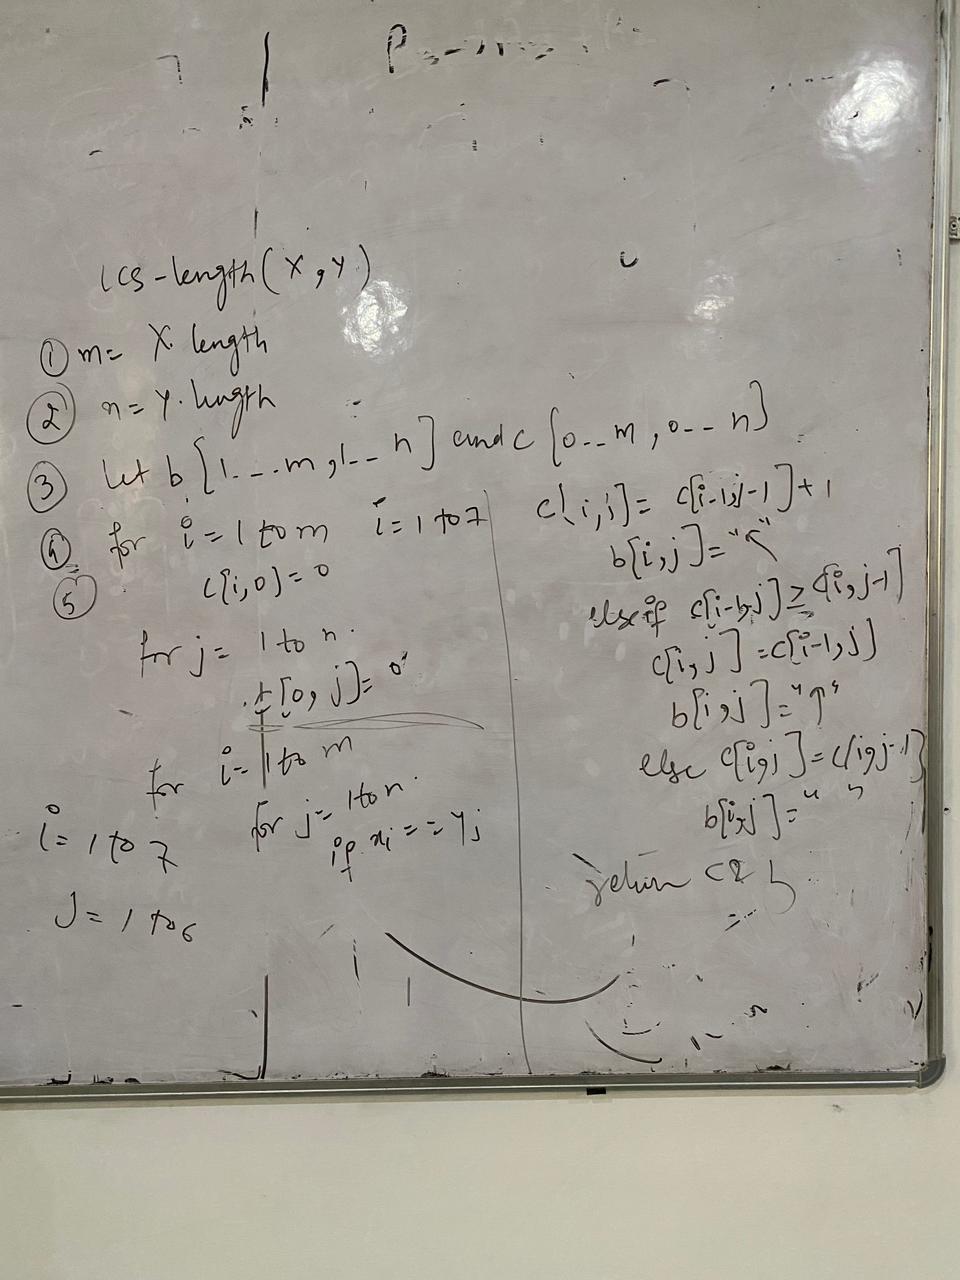 LCS-length(X,Y)
① m= X. length
② n= Y. length
③ Let b[1---m,1--n] and c[0--m,0--n]
④ for i=1 to m i=1 to 7
⑤ c[i,0]=0
for j= 1 to n.
[0, j]=0
for i= 1 to m
for j= 1 to n.
if xi == yj
i= 1 to 7
J= 1 to 6
c[i,j]= c[i-1,j-1]+1
b[i,j]="↖"
else if c[i-1,j]≥c[i,j-1]
c[i,j]=c[i-1,j]
b[i,j]="↑"
else c[i,j]=c[i,j-1]
b[i,j]=" "
return c & b